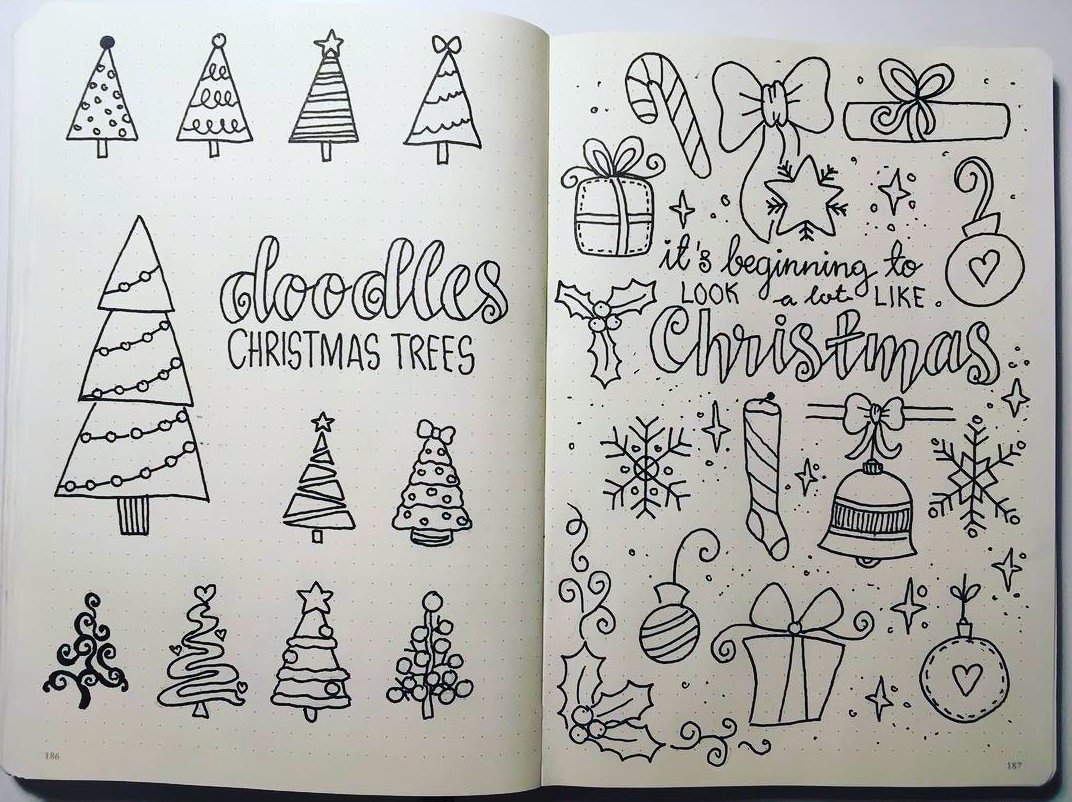 doodles
CHRISTMAS TREES
186
it's beginning to
LOOK a lot LIKE
Christmas
187